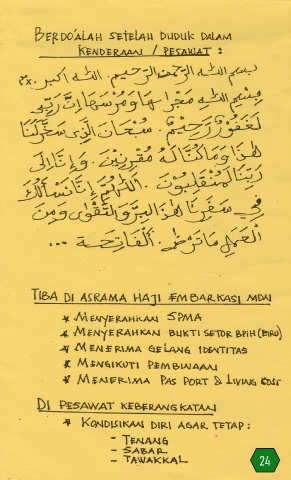 BERDO'ALAH SETELAH DUDUK DALAM
KENDERAAN / PESAWAT :
بسم الله الرحمن الرحيم . الله اكبر . ×٣
بِسْمِ اللهِ مَجْرَاهَا وَمُرْسَهَا اِنَّ رَبِّي
لَغَفُوْرٌ رَّحِيْمٌ . سُبْحَانَ الَّذِي سَخَّرَلَنَا
هٰذَا وَمَا كُنَّا لَهُ مُقْرِنِيْنَ . وَاِنَّا اِلَى
رَبِّنَا لَمُنْقَلِبُوْنَ . اَللّٰهُمَّ اِنَّا نَسْأَلُكَ
فِي سَفَرِنَا هٰذَا الْبِرَّ وَالتَّقْوَى وَمِنَ
الْعَمَلِ مَا تَرْضَى . اَلْفَاتِحَة ...
TIBA DI ASRAMA HAJI EMBARKASI MDN
* MENYERAHKAN SPMA
* MENYERAHKAN BUKTI SETOR BPIH (BIRU)
* MENERIMA GELANG IDENTITAS
* MENGIKUTI PEMBINAAN
* MENERIMA PAS PORT & LIVING COST
DI PESAWAT KEBERANGKATAN
* KONDISIKAN DIRI AGAR TETAP :
- TENANG
- SABAR
- TAWAKKAL
24